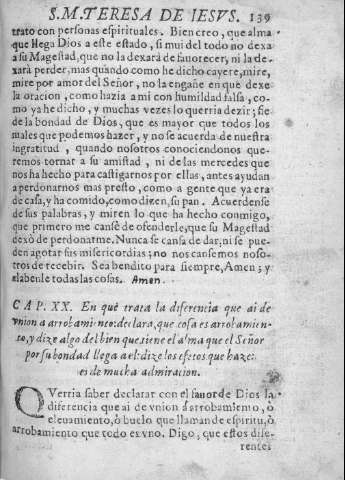 S. M. TERESA DE IESVS. 139
trato con personas espirituales. Bien creo, que alma
que llega Dios a este estado, si mui del todo no dexa
a su Magestad, que no la dexarà de fauorecer, ni la de-
xarà perder, mas quando como he dicho cayere, mire,
mire por amor del Señor, no la engañe en què dexe
la oracion, como hazia a mi con humildad falsa, co-
mo ya he dicho, y muchas vezes lo querria dezir; fie
de la bondad de Dios, que es mayor que todos los
males que podemos hazer, y no se acuerda de nuestra
ingratitud, quando nosotros conociendonos que-
remos tornar a su amistad, ni de las mercedes que
nos ha hecho para castigarnos por ellas, antes ayudan
a perdonarnos mas presto, como a gente que ya era
de casa, y ha comido, como dizen, su pan. Acuerdense
de sus palabras, y miren lo que ha hecho conmigo,
que primero me cansè de ofenderle, que su Magestad
dexò de perdonarme. Nunca se cansa de dar, ni se pue-
den agotar sus misericordias; no nos cansemos noso-
tros de recebir. Sea bendito para siempre, Amen; y
alabenle todas las cosas. Amen.
CAP. XX. En què trata la diferencia que ai de
vnion a arrobamiento: declara, que cosa es arrobamien-
to, y dize algo del bien que tiene el alma que el Señor
por su bondad llega a el: dize los efetos que haze:
es de mucha admiracion.
QVerria saber declarar con el fauor de Dios la
diferencia que ai de vnion à arrobamiento, ò
eleuamiento, ò buelo que llaman de espiritu, ò
arrobamiento que todo es vno. Digo, que estos dife-
rentes